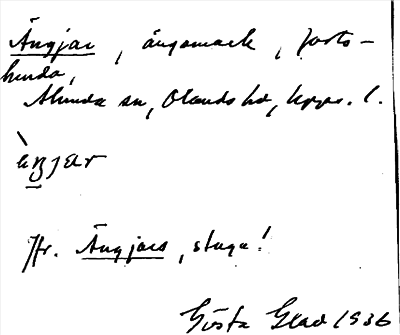 Ängjar, ängsmark, Forts-
hunda,
Alunda sn, Olands hd, Upps. l.
ὲŋjar
Jfr. Ängjars, stuga!
Gösta Glad 1936